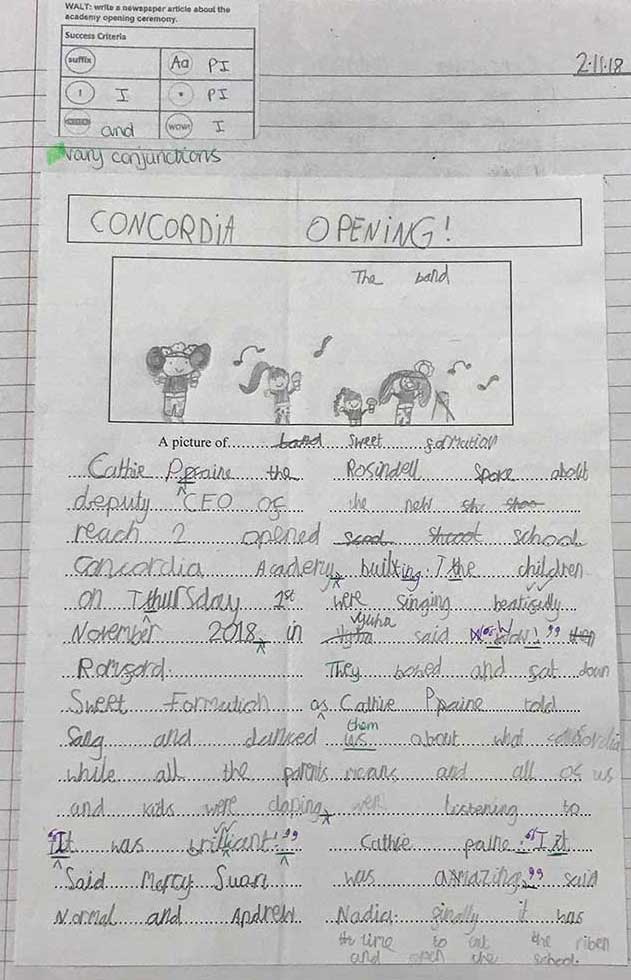 WALT: write a newspaper article about the
academy opening ceremony.
Success Criteria
suffix
Aa PI
! I
. PI
and
wow! I
2.11.18
vary conjunctions
CONCORDIA OPENING!
The band
A picture of band Sweet formation
Cathie Ppaine the
deputy CEO of
reach 2 opened
Concordia Academy,
on Thursday 1st
November 2018, in
Romford.
Sweet Formation
Sang and danced
while all the parents
and kids were claping.
"It was brilliant!"
Said Mercy Suan
Normal and Andrew.
Rosindell Spoke about
the new
school
builting. The children
were singing beatifully
yuha said "Wow!"
They bowed and sat down
as Cathie Ppaine told
them us about what concordia
means and all of us
listening to
Cathie paine. "It
was amazing" said
Nadia. finally it was
the time to cut the riben
and open the school.